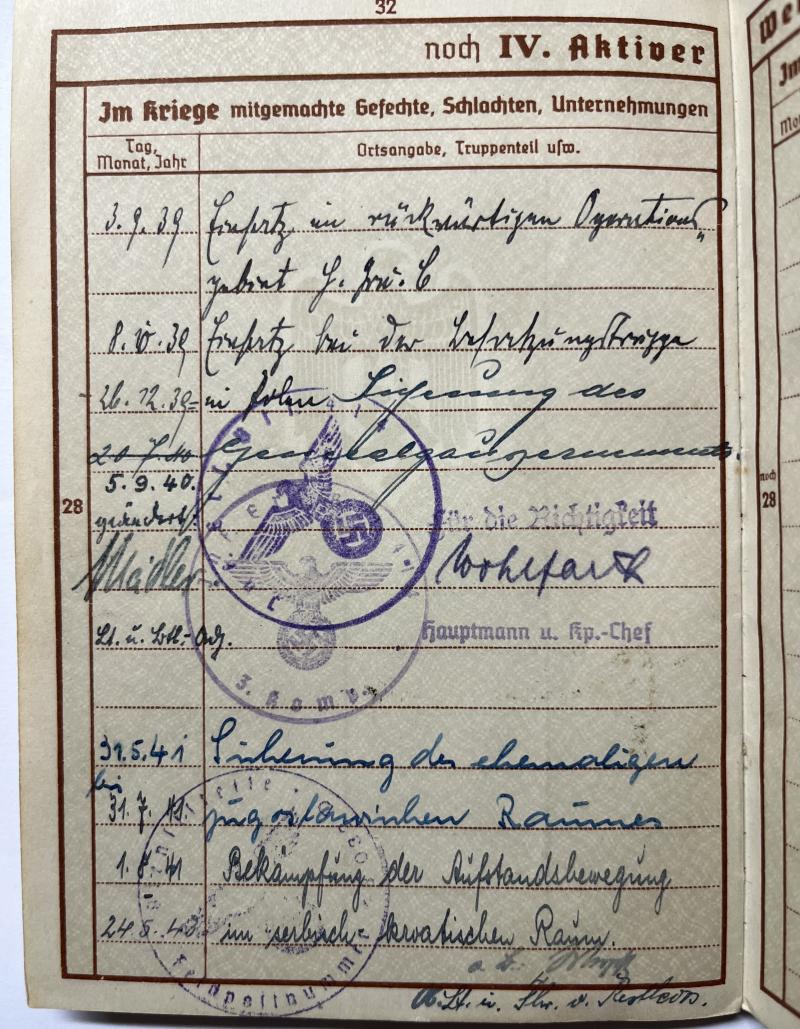 32
noch IV. Aktiver
Im Kriege mitgemachte Gefechte, Schlachten, Unternehmungen
Tag, Monat, Jahr
Ortsangabe, Truppenteil usw.
3.9.39 Einsatz im rückwärtigen Operations
gebiet H. Gru. C
8. 10. 39 Einsatz bei der Besatzungstruppe
26.12.39- in Polen Sicherung des
20.7.40 Generalgouvernements.
5.9.40.
28
geändert!
Für die Richtigkeit
Wohlfart
Lt. u. Btl.-Adj.
Hauptmann u. Kp.-Chef
3. Komp.
31.5.41 Sicherung des ehemaligen
bis
31.7.41. jugoslawischen Raumes
1.8.41 Bekämpfung der Aufstandsbewegung
im serbisch-kroatischen Raum.
Feldpostnummer
noch
28